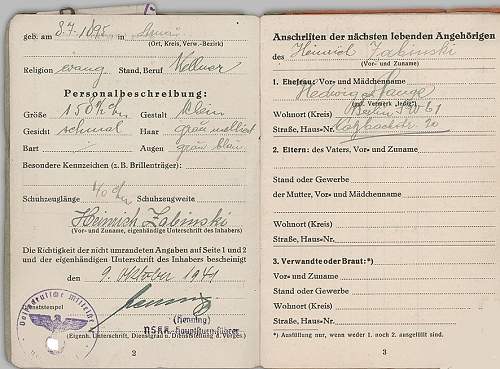 geb. am 8.7.1895 in
(Ort, Kreis, Verw.-Bezirk)
Religion evang. Stand, Beruf Kellner
Personalbeschreibung:
Größe 150 Gestalt klein
Gesicht schmal Haar
Bart Augen grau blau
Besondere Kennzeichen (z. B. Brillenträger):
Schuhzeuglänge Schuhzeugweite
Heinrich Zabinski
(Vor- und Zuname, eigenhändige Unterschrift des Inhabers)
Die Richtigkeit der nicht umrandeten Angaben auf Seite 1 und 2
und der eigenhändigen Unterschrift des Inhabers bescheinigt
den 9. Oktober 1941
Dienststempel
Henning
(Henning)
NSKK-Hauptsturmführer
(Eigenh. Unterschrift, Dienstgrad u. Dienststellung d. Vorges.)
2
Anschriften der nächsten lebenden Angehörigen
des Heinrich Zabinski
(Vor- und Zuname)
1. Ehefrau: Vor- und Mädchenname
Hedwig
(ggf. Vermerk „ledig")
Wohnort (Kreis) Berlin
Straße, Haus-Nr.
2. Eltern: des Vaters, Vor- und Zuname
Stand oder Gewerbe
der Mutter, Vor- und Mädchenname
Wohnort (Kreis)
Straße, Haus-Nr.
3. Verwandte oder Braut:*)
Vor- und Zuname
Stand oder Gewerbe
Wohnort (Kreis)
Straße, Haus-Nr.
*) Ausfüllung nur, wenn weder 1. noch 2. ausgefüllt sind.
3